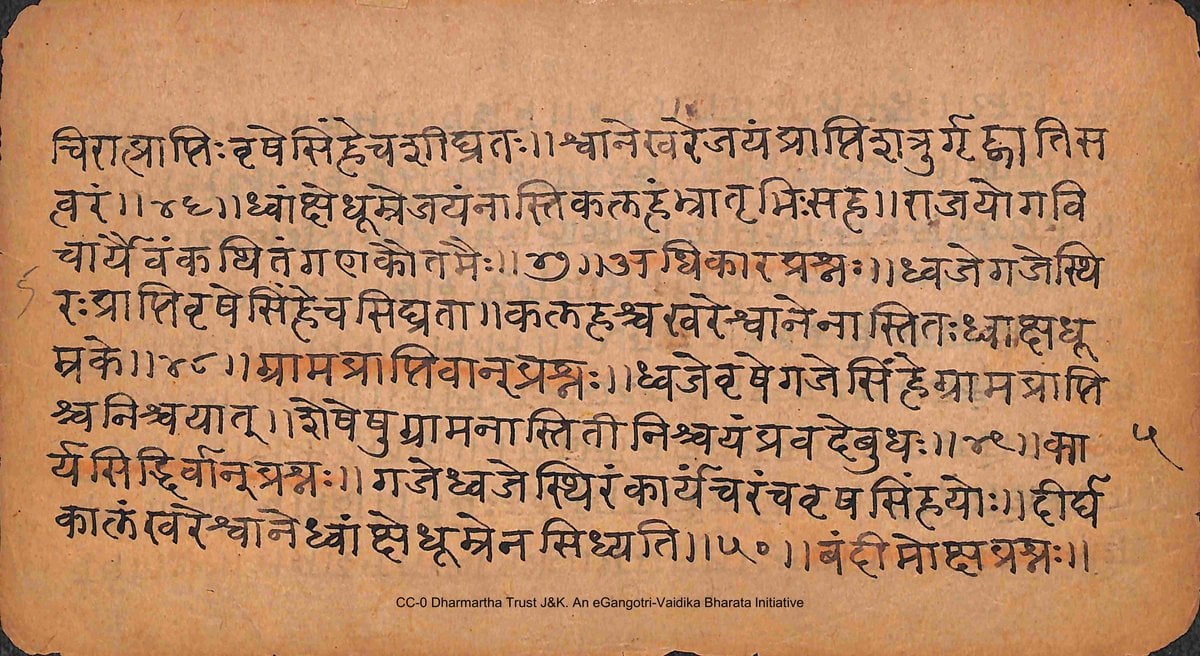 चिरात्प्राप्तिः वृषेसिंहेचशीघ्रतः ॥ श्वानेखरेजयंप्राप्तिशत्रुर्गृह्णातिस
त्वरं ॥ ४६ ॥ ध्वांक्षेधूम्रेजयंनास्तिकलहंभ्रातृभिःसह ॥ राजयोगवि
चार्यैवंकथितंगणकौतमैः ॥ ४७ ॥ अधिकारप्रश्नः ॥ ध्वजेगजेस्थि
रःप्राप्तिवृषेसिंहेचसिघ्रता ॥ कलहश्चखरेश्वानेनास्तितःध्वाक्षधू
म्रके ॥ ४८ ॥ ग्रामप्राप्तिवान्प्रश्नः ॥ ध्वजेवृषेगजेसिंहेग्रामप्राप्ति
श्चनिश्चयात् ॥ शेषेषुग्रामनास्तितीनिश्चयंप्रवदेबुधः ॥ ४९ ॥ का
५
र्यसिद्दिर्वान्प्रश्नः ॥ गजेध्वजेस्थिरंकार्यंचरंचवृषसिंहयोः ॥ दीर्घ
कालंखरेश्वानेध्वांक्षेधूम्रेनसिध्यति ॥ ५० ॥ बंदीमोक्षप्रश्नः ॥
CC-0 Dharmartha Trust J&K. An eGangotri-Vaidika Bharata Initiative